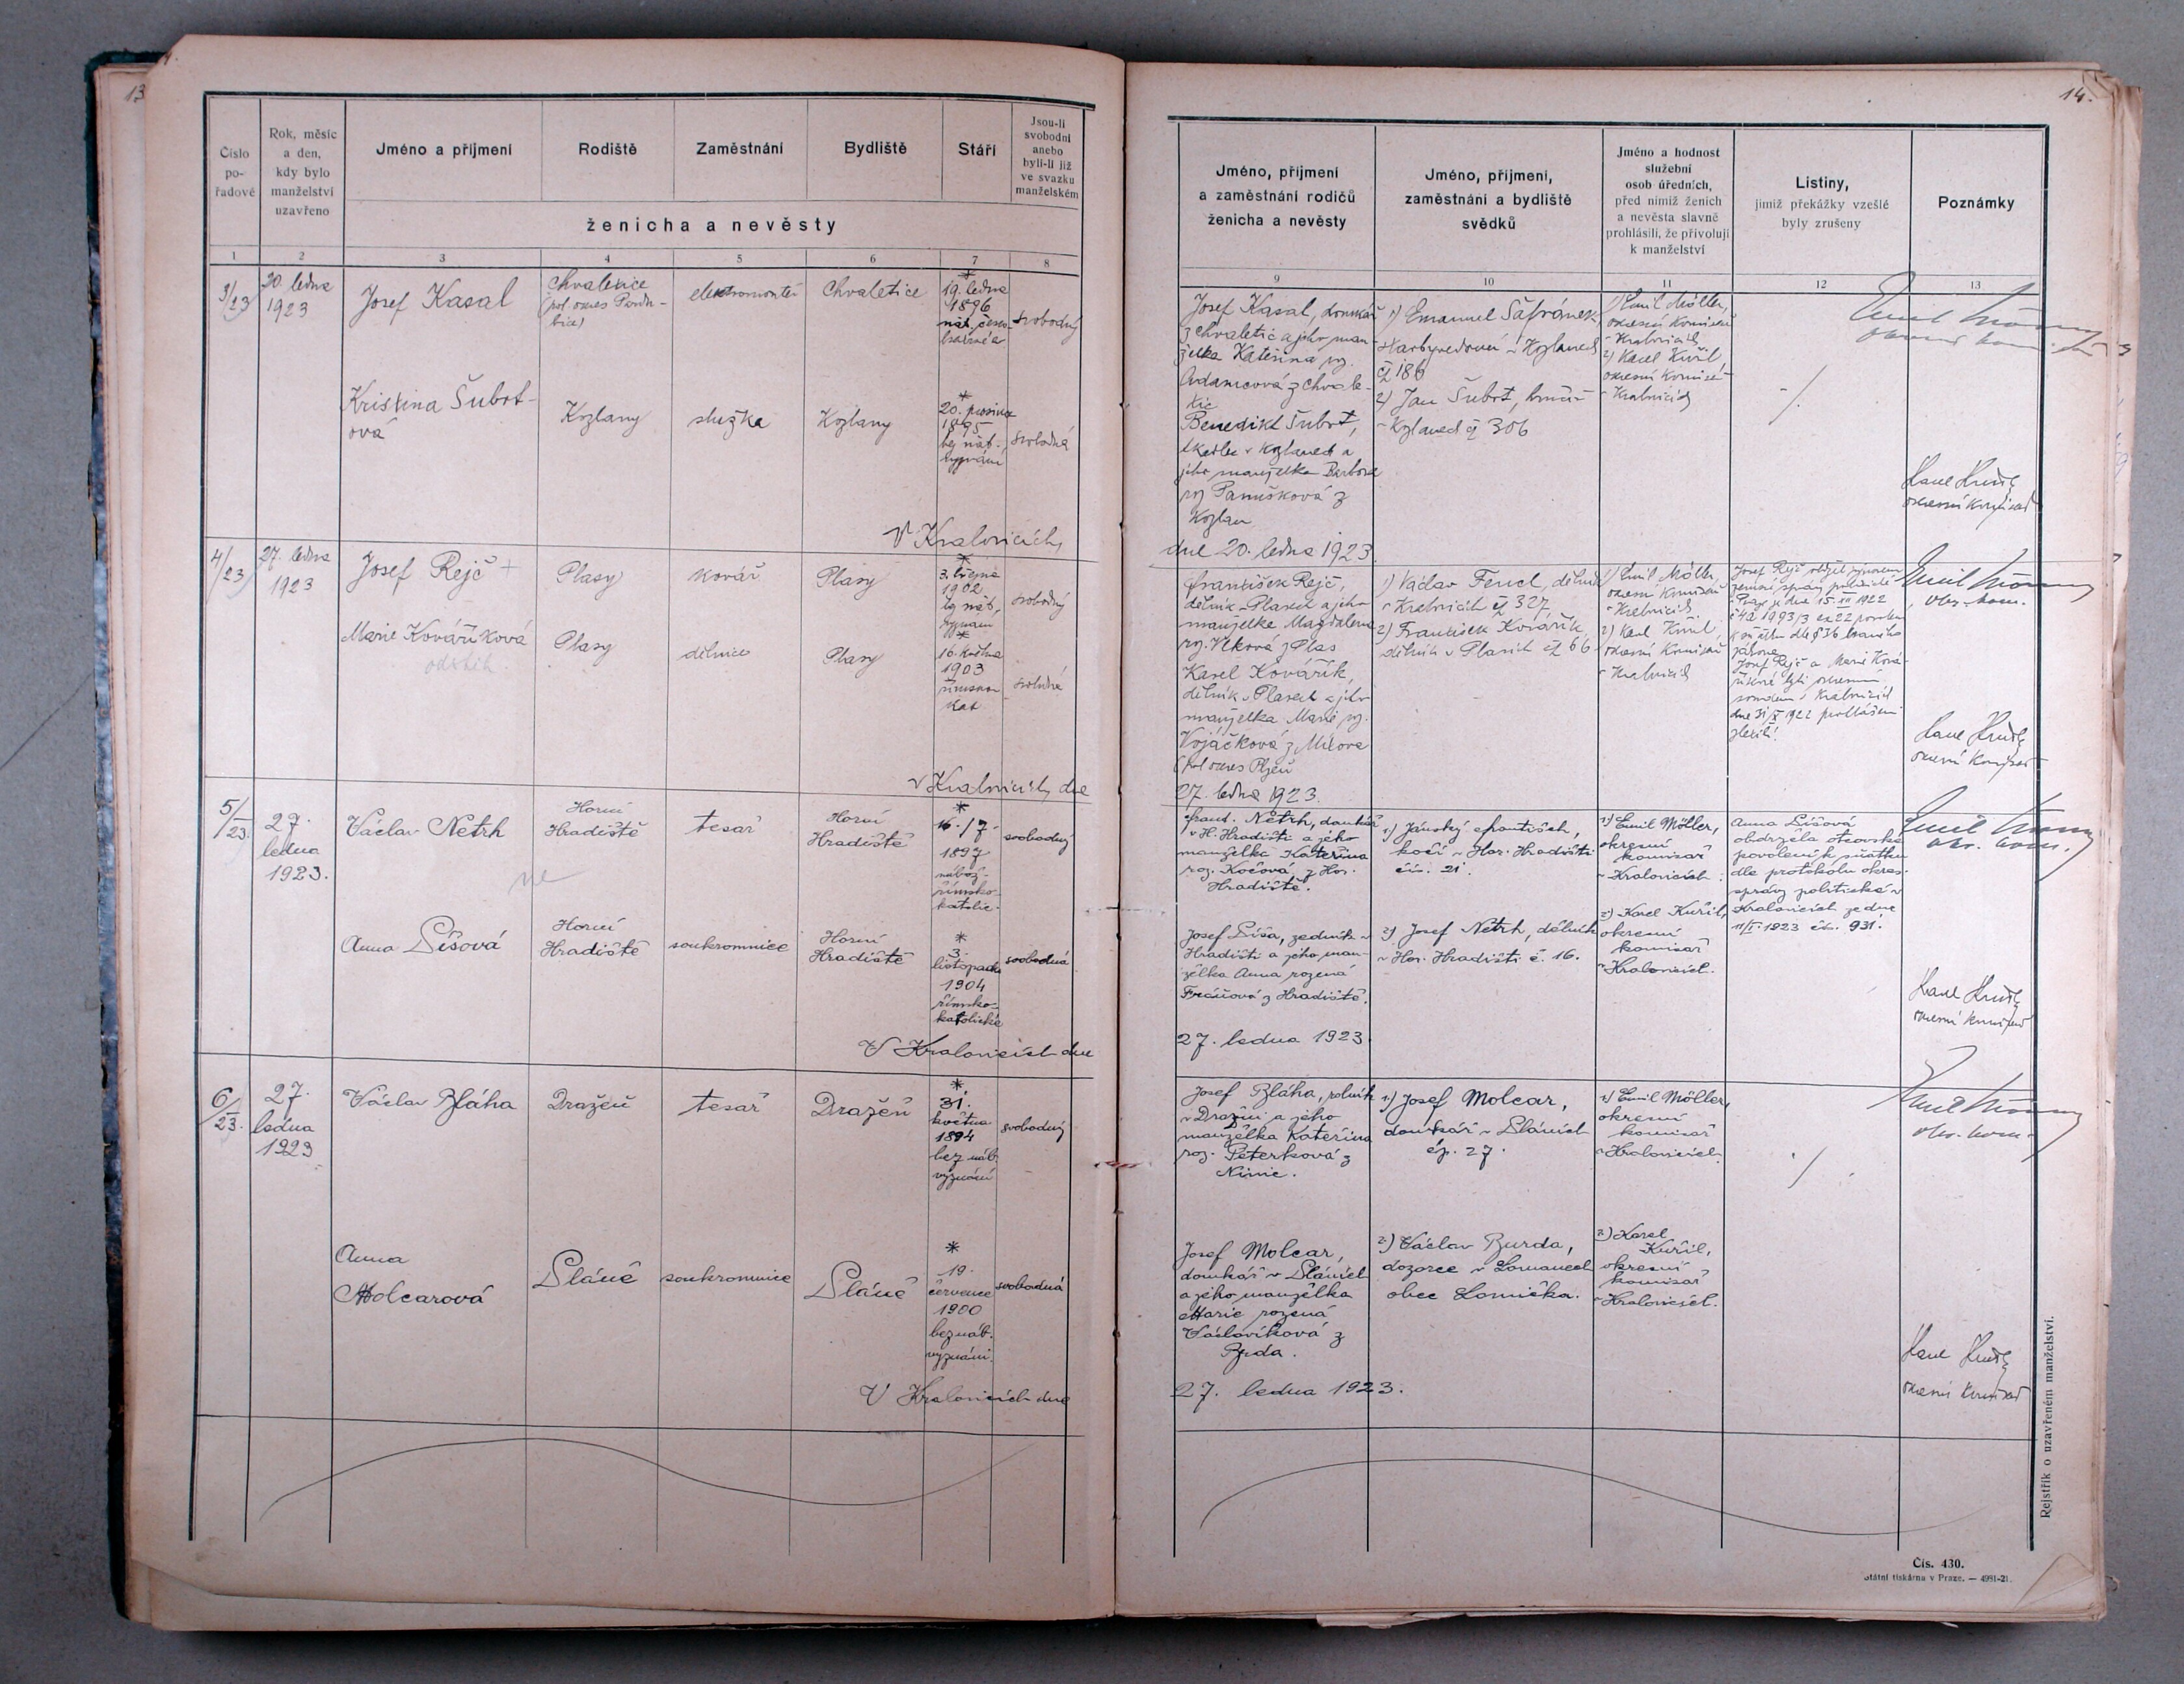 13
14.
Číslo pořadové
Rok, měsíc a den, kdy bylo manželství uzavřeno
Jméno a příjmení
Rodiště
Zaměstnání
Bydliště
Stáří
Jsou-li svobodni anebo byli-li již ve svazku manželském
ženicha a nevěsty
1 2 3 4 5 6 7 8
3/23
20. ledna
1923
Josef Kasal
Chvaletice
elektromontér
Chvaletice
*
19. ledna
1896
svobodný
Kristina Šubrt-
ová
Kozlany
služka
Kozlany
*
20. prosince
1895
bez náb.
vyznání
svobodná
V Kralovicích,
4/23
27. ledna
1923
Josef Rejč +
Plasy
kovář
Plasy
*
1902
bez náb.
svobodný
Marie Kováříková
Plasy
dělnice
Plasy
*
16. května
1903
římskokat
svobodná
v Kralovicích, dne
5/23.
27.
ledna
1923.
Václav Netrh
Horní
Hradiště
tesař
Horní
Hradiště
*
16./7.
1897
nábož.
římsko-
katolic.
svobodný
ne
Anna Líšová
Horní
Hradiště
soukromnice
Horní
Hradiště
*
3.
listopadu
1904
římsko-
katolické
svobodná
V Kralovicích dne
6/23.
27.
ledna
1923
Václav Bláha
Dražeň
tesař
Dražeň
*
31.
května
1894
bez náb.
vyznání
svobodný
Anna
Molcarová
Pláně
soukromnice
Pláně
*
19.
července
1900
bez náb.
vyznání.
svobodná
V Kralovicích dne
Jméno, příjmení
a zaměstnání rodičů
ženicha a nevěsty
Jméno, příjmení,
zaměstnání a bydliště
svědků
Jméno a hodnost
služební
osob úředních,
před nimiž ženich
a nevěsta slavně
prohlásili, že přivolují
k manželství
Listiny,
jimiž překážky vzešlé
byly zrušeny
Poznámky
9 10 11 12 13
Josef Kasal, domkář
z Chvaletic a jeho man-
želka Kateřina roz.
Adamcová z Chvale-
tic
Benedikt Šubrt,
tkadlec v Kozlanech a
jeho manželka Barbora
roz Panušková z
Kozlan
dne 20. ledna 1923.
1) Emanuel Šafránek,
v Kozlanech
čp 186
2) Jan Šubrt,
v Kozlanech čp 306
1) Emil Möller,
okresní komisař
v Kralovicích
2) Karel Kuřil,
okresní komisař
v Kralovicích
okresní komisař
František Rejč,
dělník v Plasech a jeho
manželka Magdalena
roz. Vlková z Plas
Karel Kovářík,
dělník v Plasech a jeho
manželka Marie roz.
Vojáčková z
(pol. okres Plzeň
27. ledna 1923.
1) Václav Fencl, dělník
v Kralovicích čp 327
2) František Kovářík,
dělník v Plasích čp 66
1) Emil Möller,
okresní komisař
v Kralovicích
2) Karel Kuřil,
okresní komisař
v Kralovicích
Josef Rejč
zemské správy politické
v Praze ze dne 15. XII 1922
zákona
Josef Rejč a Marie Ková-
říková byli okresním
soudem v Kralovicích
dne 31/X 1922 prohlášeni
zletilí.
okr. kom.
okresní komisař
Frant. Netrh, domkář
v H. Hradišti a jeho
manželka Kateřina
roz. Kočová z Hor.
Hradiště.
Josef Líša, zedník v
Hradišti a jeho man-
želka Anna rozená
z Hradiště.
27. ledna 1923.
1) Jánský František,
kočí v Hor. Hradišti
čís. 21.
2) Josef Netrh, dělník
v Hor. Hradišti č. 16.
1) Emil Möller,
okresní
komisař
v Kralovicích.
2) Karel Kuřil,
okresní
komisař
v Kralovicích.
Anna Líšová
obdržela otcovské
povolení k sňatku
dle protokolu okres.
správy politické v
Kralovicích ze dne
11/I. 1923 čís. 931.
okr. kom.
okresní komisař
Josef Bláha, rolník
v Dražni a jeho
manželka Kateřina
roz. Peterková z
Josef Molcar,
domkář v Pláních
a jeho manželka
Marie rozená
Václavíková z
27. ledna 1923.
1) Josef Molcar,
domkář v Pláních
čp. 27.
2) Václav Burda,
dozorce v Lomanech
obec Lomnička.
1) Emil Möller,
okresní
komisař
v Kralovicích.
2) Karel
Kuřil,
okresní
komisař
v Kralovicích.
okr. kom.
okresní komisař
Rejstřík o uzavřeném manželství.
Čís. 430.
Státní tiskárna v Praze. — 4981-21.